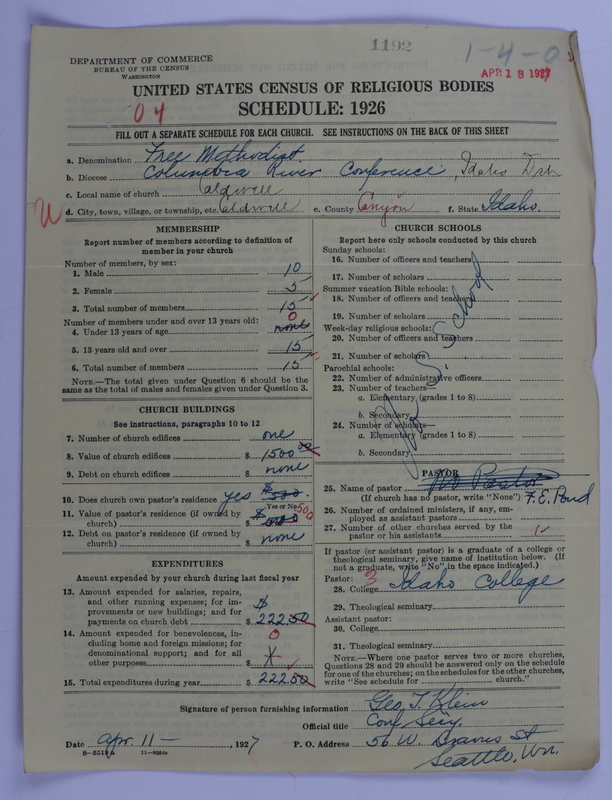 1192
1-4-0
APR 18 1927
DEPARTMENT OF COMMERCE
BUREAU OF THE CENSUS
WASHINGTON
UNITED STATES CENSUS OF RELIGIOUS BODIES
SCHEDULE: 1926
04
FILL OUT A SEPARATE SCHEDULE FOR EACH CHURCH. SEE INSTRUCTIONS ON THE BACK OF THIS SHEET
a. Denomination Free Methodist.
b. Diocese Columbia River Conference, Idaho
c. Local name of church Caldwell
d. City, town, village, or township, etc. Caldwell e. County Canyon f. State Idaho.
MEMBERSHIP
Report number of members according to definition of member in your church
Number of members, by sex:
1. Male 10
2. Female 5
3. Total number of members 15
Number of members under and over 13 years old:
0
4. Under 13 years of age none
5. 13 years old and over 15
6. Total number of members 15
NOTE.—The total given under Question 6 should be the
same as the total of males and females given under Question 3.
CHURCH BUILDINGS
See instructions, paragraphs 10 to 12
7. Number of church edifices one
8. Value of church edifices $ 1500 00
9. Debt on church edifices $ none
10. Does church own pastor's residence yes $500.
Yes or No
11. Value of pastor's residence (if owned by
church) $ 500
12. Debt on pastor's residence (if owned by
church) $ none
EXPENDITURES
Amount expended by your church during last fiscal year
13. Amount expended for salaries, repairs,
and other running expenses; for im-
provements or new buildings; and for
payments on church debt $ 222.50
14. Amount expended for benevolences, in-
cluding home and foreign missions; for
denominational support; and for all
other purposes $ 0
15. Total expenditures during year $ 222.50
CHURCH SCHOOLS
Report here only schools conducted by this church
Sunday schools:
16. Number of officers and teachers
17. Number of scholars
Summer vacation Bible schools:
18. Number of officers and teachers
19. Number of scholars
Week-day religious schools:
20. Number of officers and teachers
21. Number of scholars
Parochial schools:
22. Number of administrative officers
23. Number of teachers—
a. Elementary (grades 1 to 8)
b. Secondary
24. Number of scholars—
a. Elementary (grades 1 to 8)
b. Secondary
No S. School
PASTOR
25. Name of pastor No Pastor
(If church has no pastor, write "None") F. E. Pond
26. Number of ordained ministers, if any, em-
ployed as assistant pastors
27. Number of other churches served by the
pastor or his assistants 1
If pastor (or assistant pastor) is a graduate of a college or
theological seminary, give name of institution below. (If
not a graduate, write "No" in the space indicated.)
Pastor: 3
28. College Idaho College
29. Theological seminary
Assistant pastor:
30. College
31. Theological seminary
NOTE.—Where one pastor serves two or more churches,
Questions 28 and 29 should be answered only on the schedule
for one of the churches; on the schedules for the other churches,
write "See schedule for church."
Signature of person furnishing information Geo. T. Klein
Official title Conf Secy.
Date Apr. 11— 1927 P. O. Address 56 W. Dravus St
Seattle, Wn.